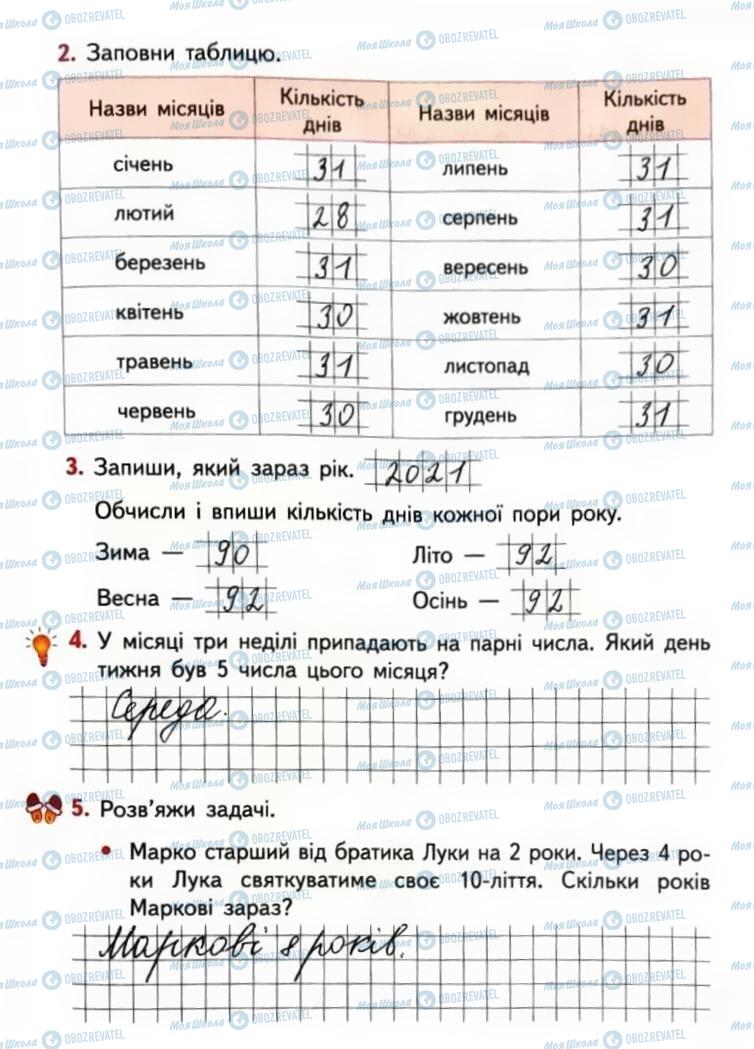 2. Заповни таблицю.
Назви місяців Кількість днів Назви місяців Кількість днів
січень 31 липень 31
лютий 28 серпень 31
березень 31 вересень 30
квітень 30 жовтень 31
травень 31 листопад 30
червень 30 грудень 31
3. Запиши, який зараз рік. 2021
Обчисли і впиши кількість днів кожної пори року.
Зима — 90 Літо — 92
Весна — 92 Осінь — 92
4. У місяці три неділі припадають на парні числа. Який день
тижня був 5 числа цього місяця?
Середа.
5. Розв’яжи задачі.
• Марко старший від братика Луки на 2 роки. Через 4 ро-
ки Лука святкуватиме своє 10-ліття. Скільки років
Маркові зараз?
Маркові 8 років.
МояШкола OBOZREVATEL